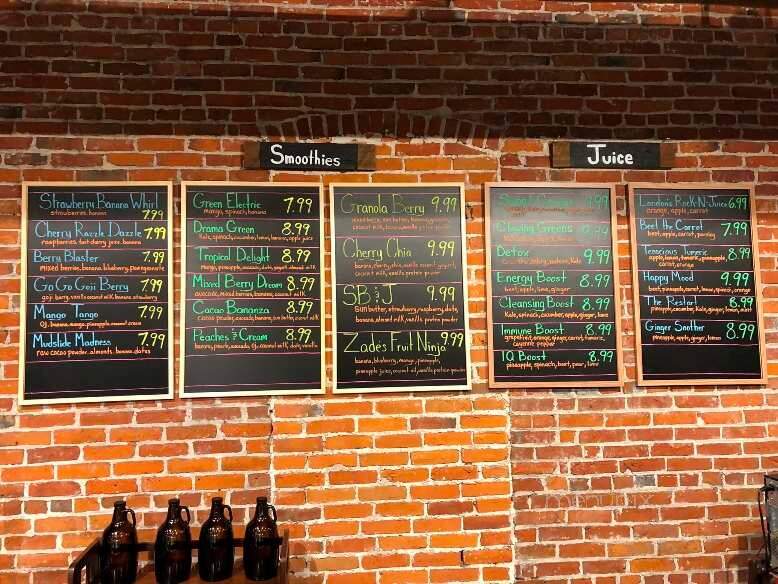 Smoothies
Juice
Strawberry Banana Whirl
strawberries, banana
7.99
Cherry Razzle Dazzle 7.99
raspberries, tart cherry juice, banana
Berry Blaster 7.99
mixed berries, banana, blueberry, pomegranate
Go Go Goji Berry 7.99
goji berry, vanilla coconut milk, banana, strawberry
Mango Tango 7.99
OJ, banana, mango, pineapple, coconut cream
Mudslide Madness 7.99
raw cacao powder, almonds, banana, dates
Green Electric 7.99
mango, spinach, banana
Drama Green 8.99
kale, spinach, cucumber, lemon, banana, apple juice
Tropical Delight 8.99
mango, pineapple, avocado, date, yogurt, almond milk
Mixed Berry Dream 8.99
avocado, mixed berries, banana, coconut milk
Cacao Bananza 8.99
cacao powder, banana, sun butter, coconut milk
Peaches & Cream 8.99
banana, peach, avocado, OJ, coconut milk, date, vanilla
Granola Berry 9.99
Cherry Chia 9.99
banana, cherry, chia, vanilla coconut yogurt,
coconut milk, vanilla protein powder
SB & J 9.99
Sun butter, strawberry, raspberry, date,
banana, almond milk, vanilla protein powder
Zade's Fruit Ninja 9.99
banana, blueberry, mango, pineapple,
pineapple juice, coconut oil, vanilla protein powder
Greens
Detox 9.99
Energy Boost 8.99
beet, apple, lime, ginger
Cleansing Boost 8.99
Kale, spinach, cucumber, apple, ginger, lime
Immune Boost 8.99
grapefruit, orange, ginger, carrot, turmeric,
cayenne pepper
IQ Boost 8.99
pineapple, spinach, beet, pear, lime
Landon's Rock-N-Juice 6.99
orange, apple, carrot
Beet the Carrot 7.99
beet, apple, carrot, parsley
Tenacious Tumeric 8.99
apple, lemon, turmeric, pineapple,
carrot, orange
Happy Mood 9.99
beet, pineapple, carrot, lemon, spinach, orange
The Restart 8.99
pineapple, cucumber, kale, ginger, lemon, mint
Ginger Soother 8.99
pineapple, apple, ginger, lemon
menupix